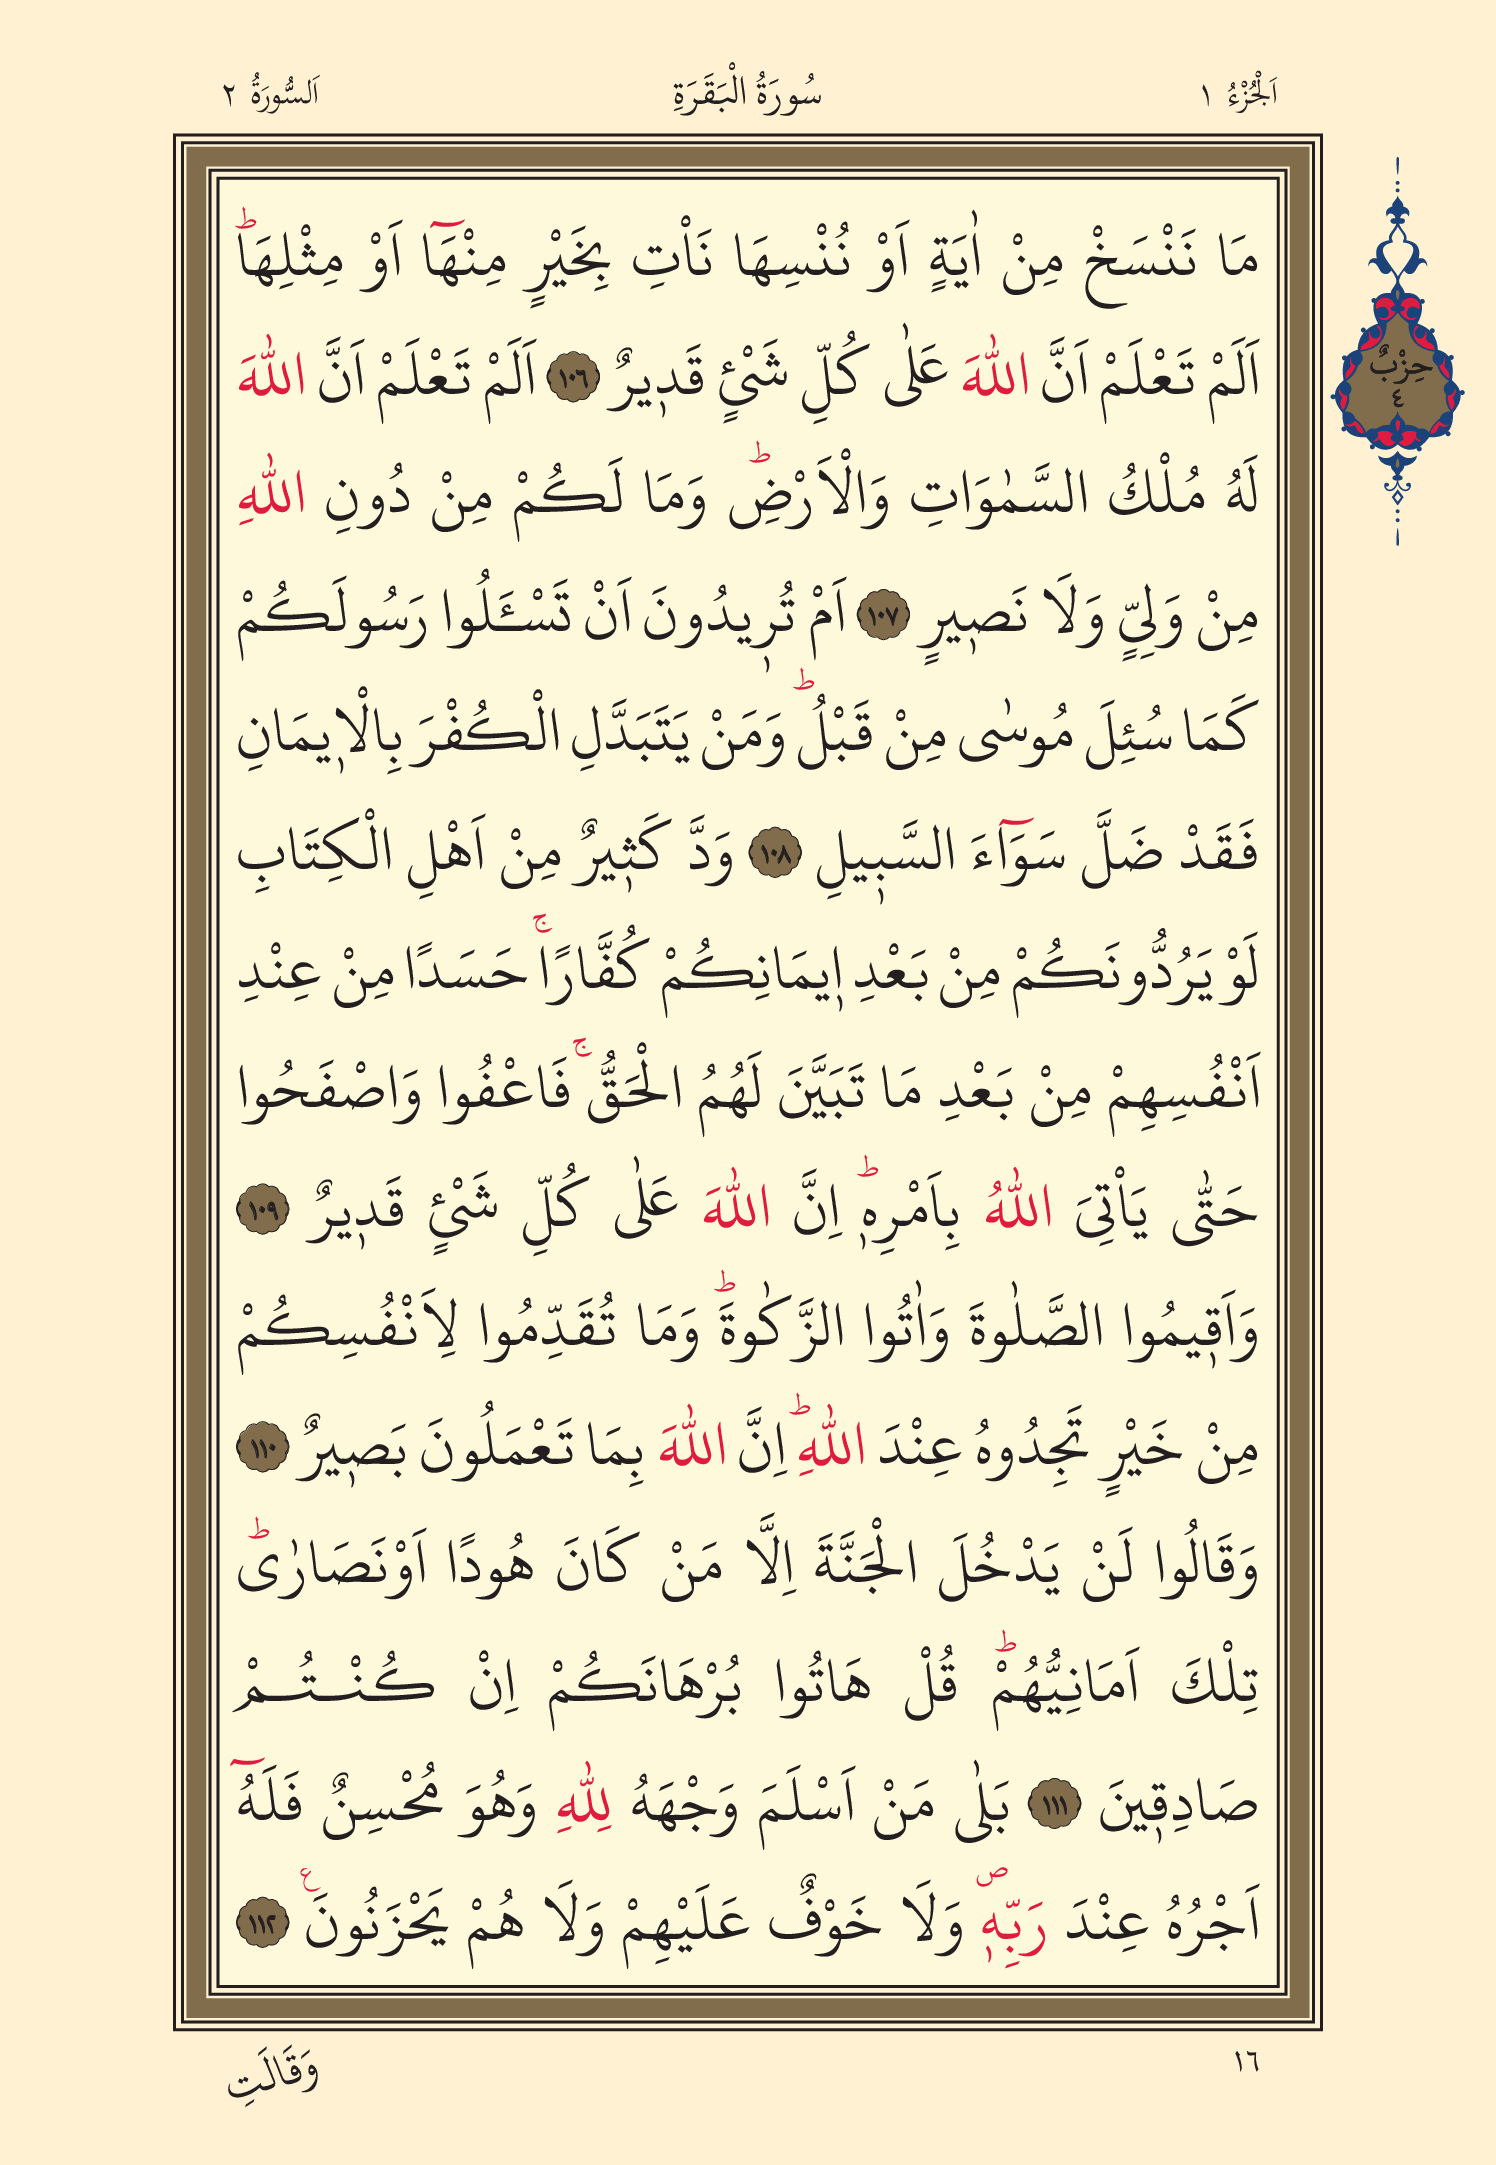 اَلْجُزْءُ ١ سُورَةُ الْبَقَرَةِ اَلسُّورَةُ ٢
حِزْبٌ
٤
مَا نَنْسَخْ مِنْ اٰيَةٍ اَوْ نُنْسِهَا نَاْتِ بِخَيْرٍ مِنْهَٓا اَوْ مِثْلِهَاۜ
اَلَمْ تَعْلَمْ اَنَّ اللّٰهَ عَلٰى كُلِّ شَيْئٍ قَد۪يرٌ ﴿١٠٦﴾ اَلَمْ تَعْلَمْ اَنَّ اللّٰهَ
لَهُ مُلْكُ السَّمٰوَاتِ وَالْاَرْضِۜ وَمَا لَكُمْ مِنْ دُونِ اللّٰهِ
مِنْ وَلِيٍّ وَلَا نَص۪يرٍ ﴿١٠٧﴾ اَمْ تُر۪يدُونَ اَنْ تَسْـَٔلُوا رَسُولَكُمْ
كَمَا سُئِلَ مُوسٰى مِنْ قَبْلُۜ وَمَنْ يَتَبَدَّلِ الْكُفْرَ بِالْا۪يمَانِ
فَقَدْ ضَلَّ سَوَٓاءَ السَّب۪يلِ ﴿١٠٨﴾ وَدَّ كَث۪يرٌ مِنْ اَهْلِ الْكِتَابِ
لَوْ يَرُدُّونَكُمْ مِنْ بَعْدِ ا۪يمَانِكُمْ كُفَّارًاۚ حَسَدًا مِنْ عِنْدِ
اَنْفُسِهِمْ مِنْ بَعْدِ مَا تَبَيَّنَ لَهُمُ الْحَقُّۚ فَاعْفُوا وَاصْفَحُوا
حَتّٰى يَاْتِيَ اللّٰهُ بِاَمْرِه۪ۜ اِنَّ اللّٰهَ عَلٰى كُلِّ شَيْئٍ قَد۪يرٌ ﴿١٠٩﴾
وَاَق۪يمُوا الصَّلٰوةَ وَاٰتُوا الزَّكٰوةَۜ وَمَا تُقَدِّمُوا لِاَنْفُسِكُمْ
مِنْ خَيْرٍ تَجِدُوهُ عِنْدَ اللّٰهِۜ اِنَّ اللّٰهَ بِمَا تَعْمَلُونَ بَص۪يرٌ ﴿١١٠﴾
وَقَالُوا لَنْ يَدْخُلَ الْجَنَّةَ اِلَّا مَنْ كَانَ هُودًا اَوْ نَصَارٰىۜ
تِلْكَ اَمَانِيُّهُمْۜ قُلْ هَاتُوا بُرْهَانَكُمْ اِنْ كُنْتُمْ
صَادِق۪ينَ ﴿١١١﴾ بَلٰى مَنْ اَسْلَمَ وَجْهَهُ لِلّٰهِ وَهُوَ مُحْسِنٌ فَلَهُٓ
اَجْرُهُ عِنْدَ رَبِّه۪ۖ وَلَا خَوْفٌ عَلَيْهِمْ وَلَا هُمْ يَحْزَنُونَ ع ﴿١١٢﴾
١٦ وَقَالَتِ